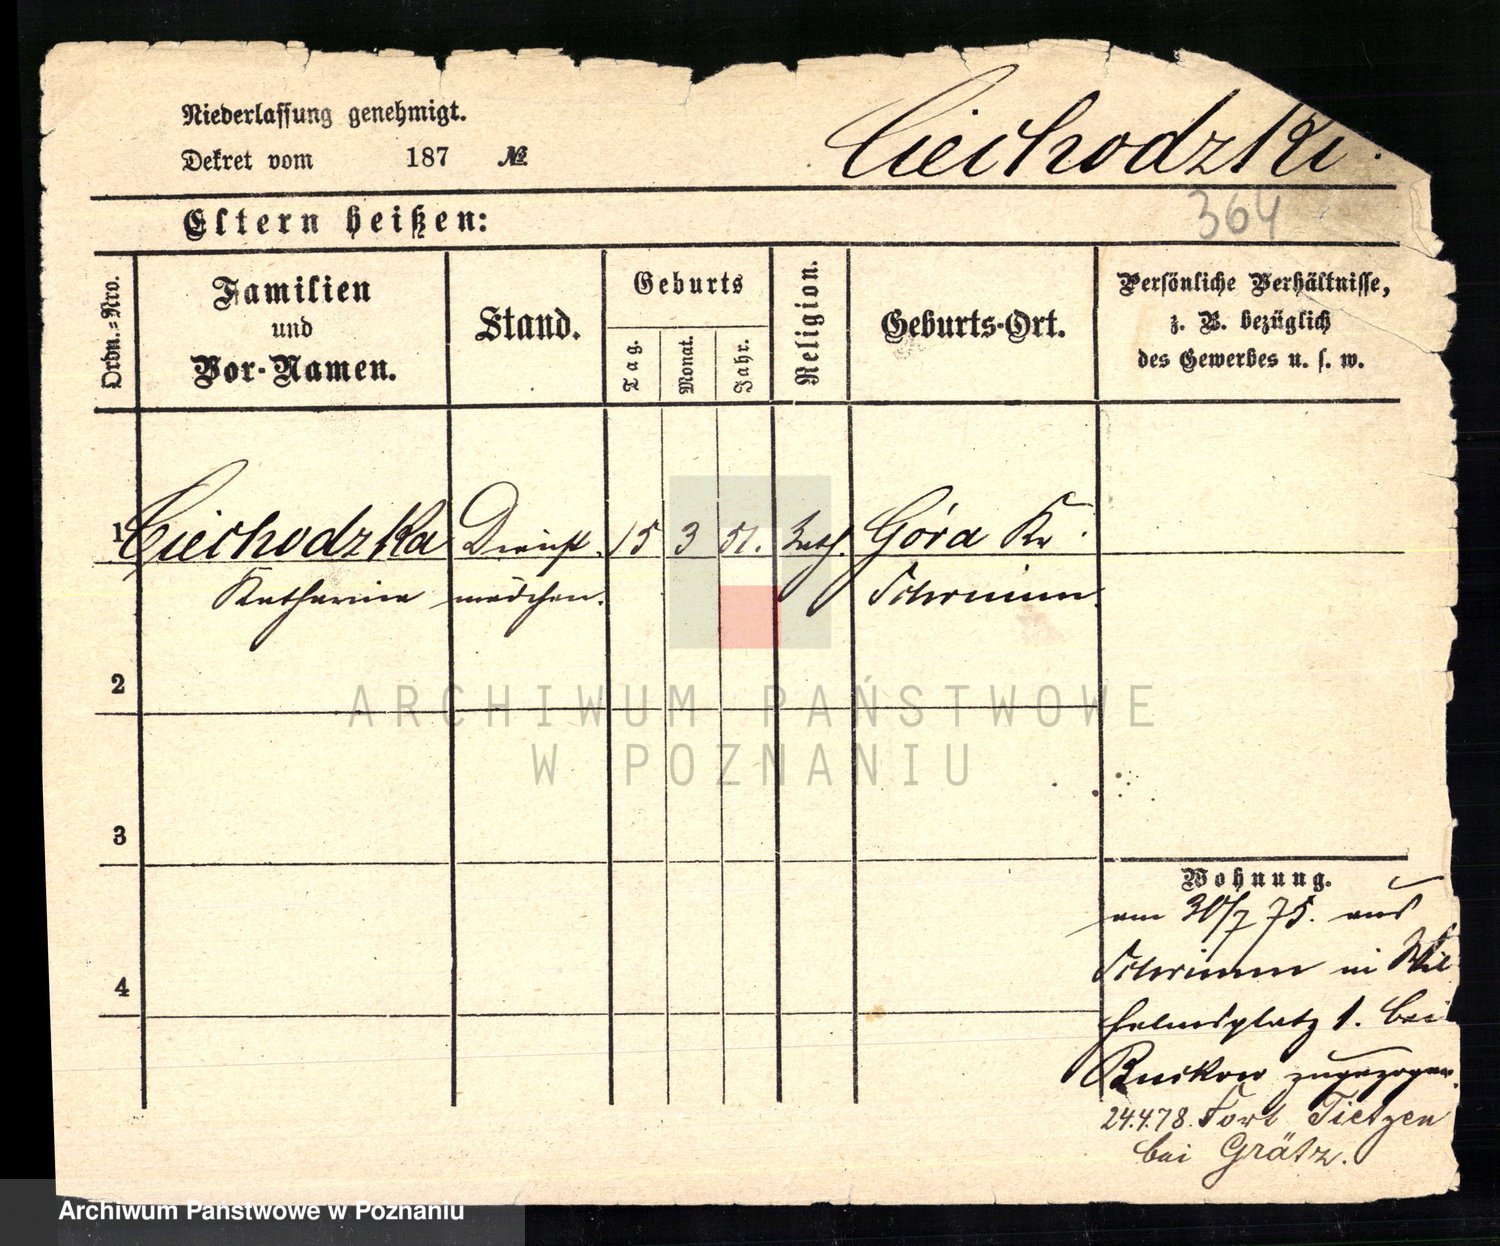 Niederlassung genehmigt.
Dekret vom 187 №
Ciechodzki.
364
Eltern heißen:
Ordn.=Nro.
Familien
und
Vor-Namen.
Stand.
Geburts
Tag.
Monat.
Jahr.
Religion.
Geburts-Ort.
Persönliche Verhältnisse,
z. B. bezüglich
des Gewerbes u. s. w.
1 Ciechodzka Dienst 15 3 51. kath. Góra Kr.
Katharina mädchen. Schrimm.
2
ARCHIWUM PAŃSTWOWE
W POZNANIU
3
Wohnung.
am 30/7 75. aus
Schrimm in Wil
helmsplatz 1. bei
zugezogen.
4
24.4.78. Fort Tietzen
bei Grätz.
Archiwum Państwowe w Poznaniu